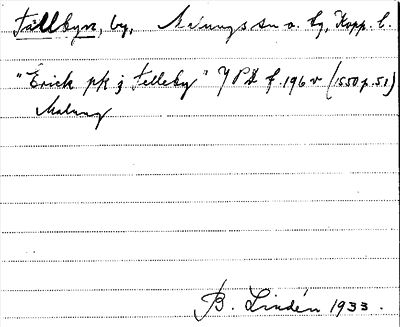 Fällbyn, by, Malungs sn o. tg, Kopp. l.
"Erick pk j Felleby" JPB f. 196 v (1550 p. 51)
Malung
B. Lindén 1933.